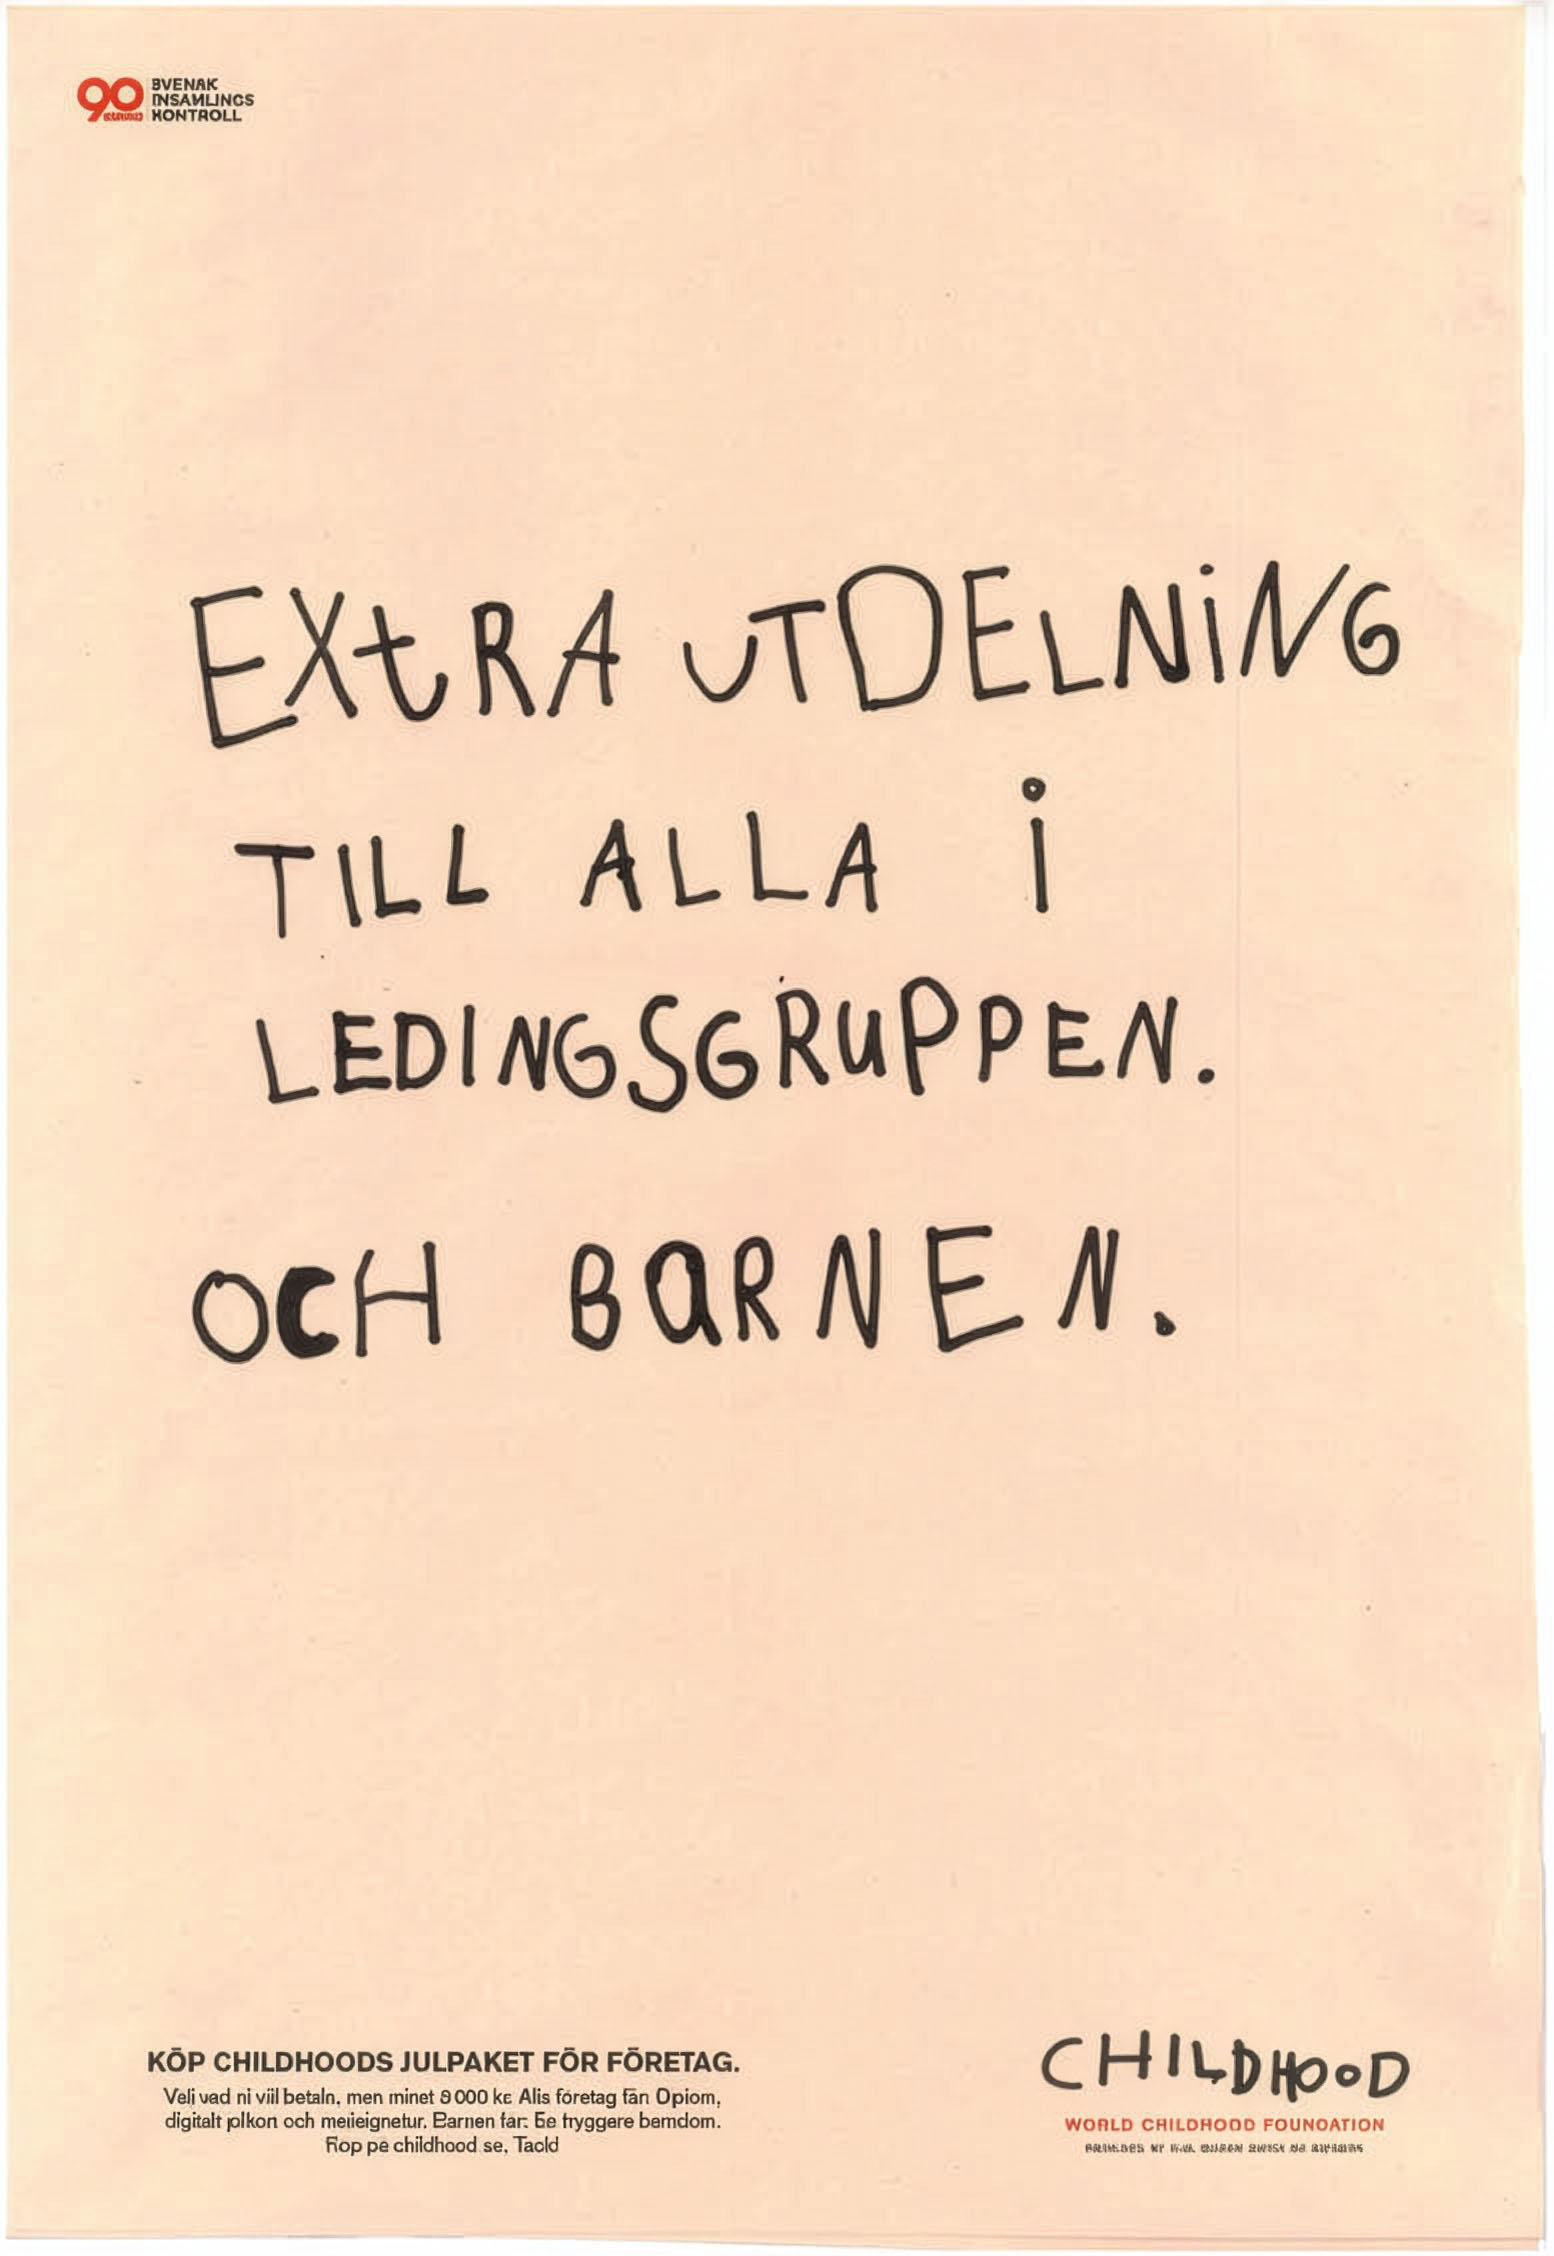 90
SVENAK
INSAMLINGS
KONTROLL
EXtRA UTDELNiNG
TILL ALLA i
LEDINGSGRUPPEN.
OCH BaRNEN.
KÖP CHILDHOODS JULPAKET FÖR FÖRETAG.
Velj vad ni viil betaln, men minet 8 000 kr Alis företag fån Opiom,
digitalt plkon och meiieignetur. Barnen far: Ee tryggere bemdom.
Rop pe childhood se, Taold
CHILDHOOD
WORLD CHILDHOOD FOUNOATION